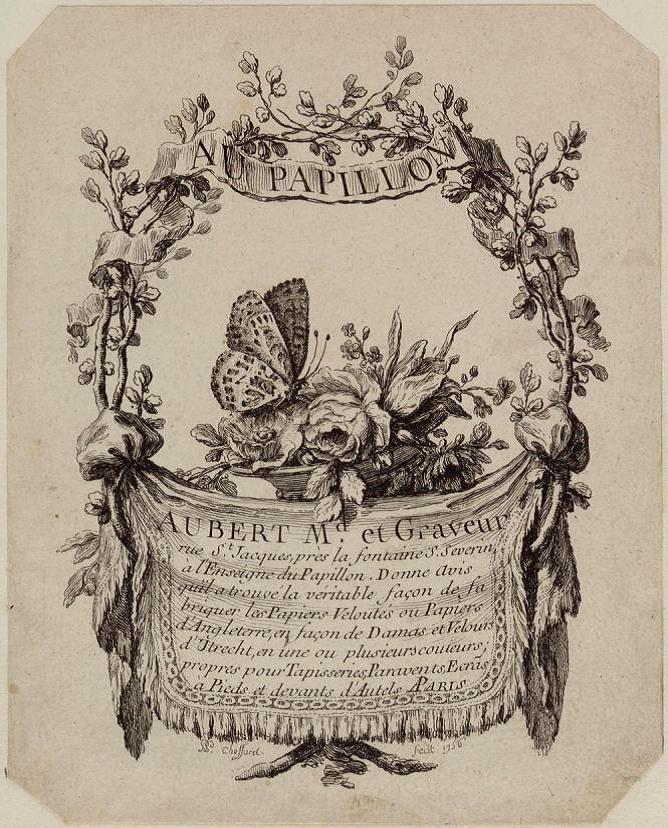 AU PAPILLON
AUBERT M.d et Graveur
rue S.t Jacques, près la fontaine S. Severin,
a l'Enseigne du Papillon. Donne Avis
qu'il a trouvé la véritable façon de fa
briquer les Papiers Veloutés ou Papiers
d'Angleterre, en façon de Damas et Velours
d'Utrecht, en une ou plusieurs couleurs;
propres pour Tapisseries, Paravents, Ecrãs
a Pieds et devants d'Autels A PARIS
Choffard. fecit 1756